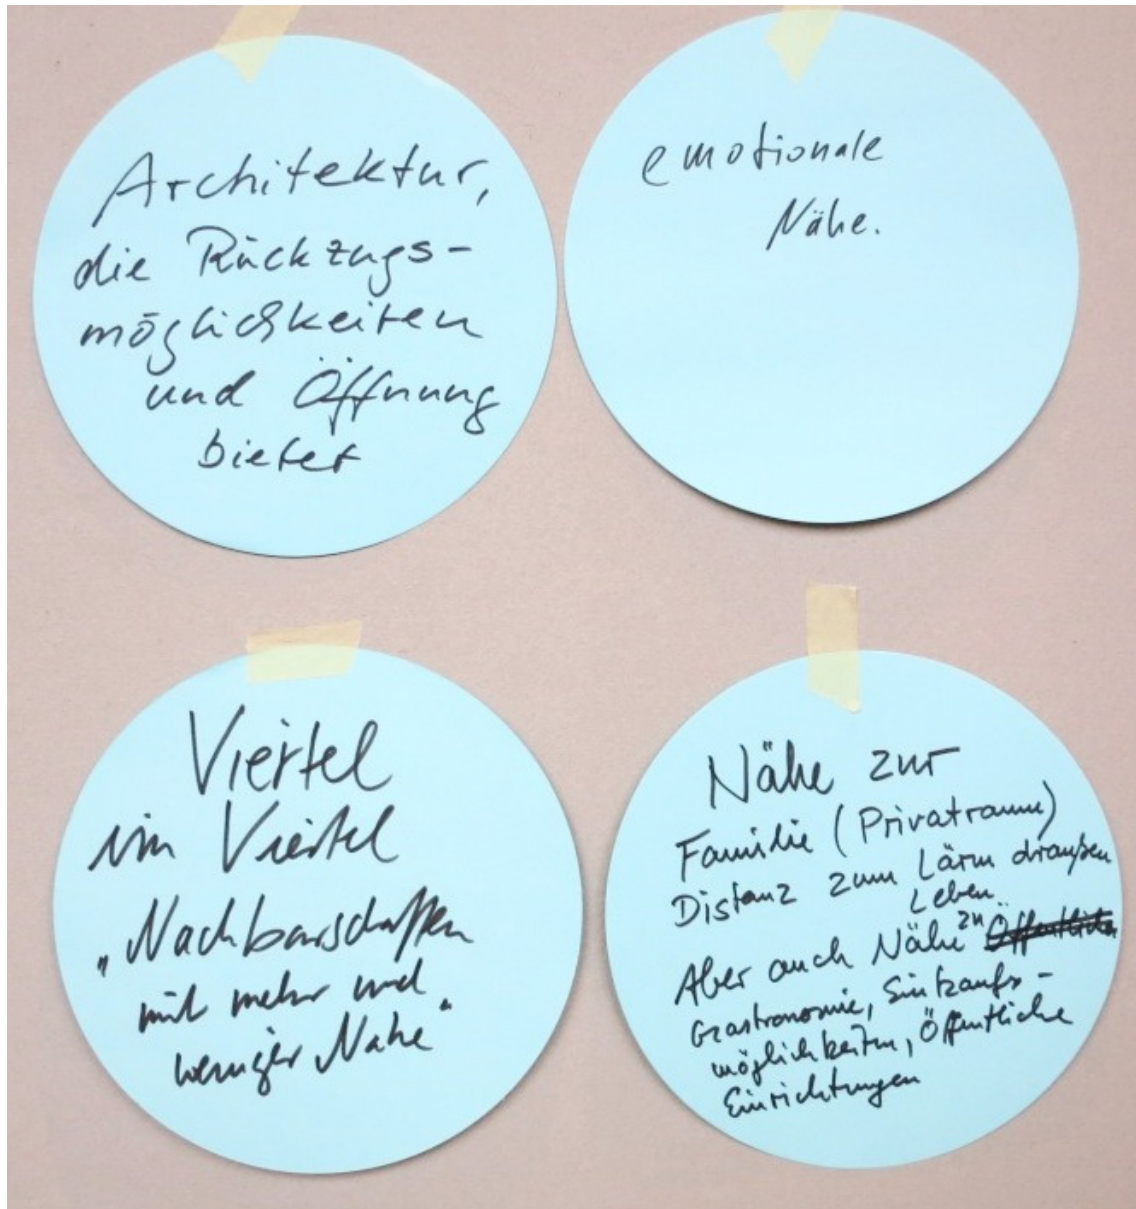 Architektur,
die Rückzugs-
möglichkeiten
und Öffnung
bietet
emotionale
Nähe.
Viertel
im Viertel
„Nachbarschaften
mit mehr und
weniger Nähe“
Nähe zur
Familie (Privatraum)
Distanz zum Lärm draußen
Leben
Aber auch Nähe zu Öffentliche
Gastronomie, Einkaufs-
möglichkeiten, Öffentliche
Einrichtungen